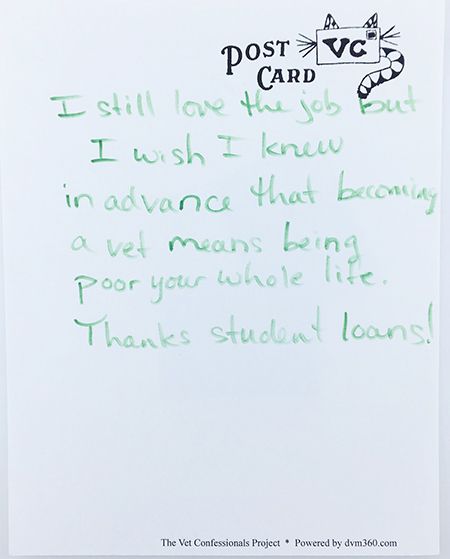 POST
CARD
VC
I still love the job but
I wish I knew
in advance that becoming
a vet means being
poor your whole life.
Thanks student loans!
The Vet Confessionals Project * Powered by dvm360.com